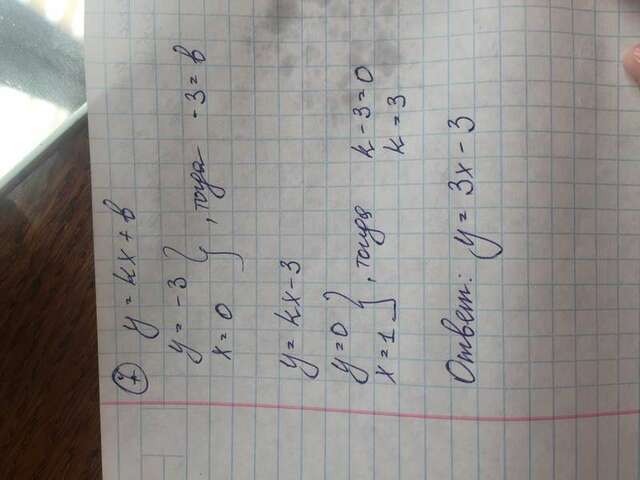 ⑦ y = kx + b
y = -3
x = 0 } , тогда -3 = b
y = kx - 3
y = 0
x = 1 } , тогда k - 3 = 0
k = 3
Ответ: y = 3x - 3